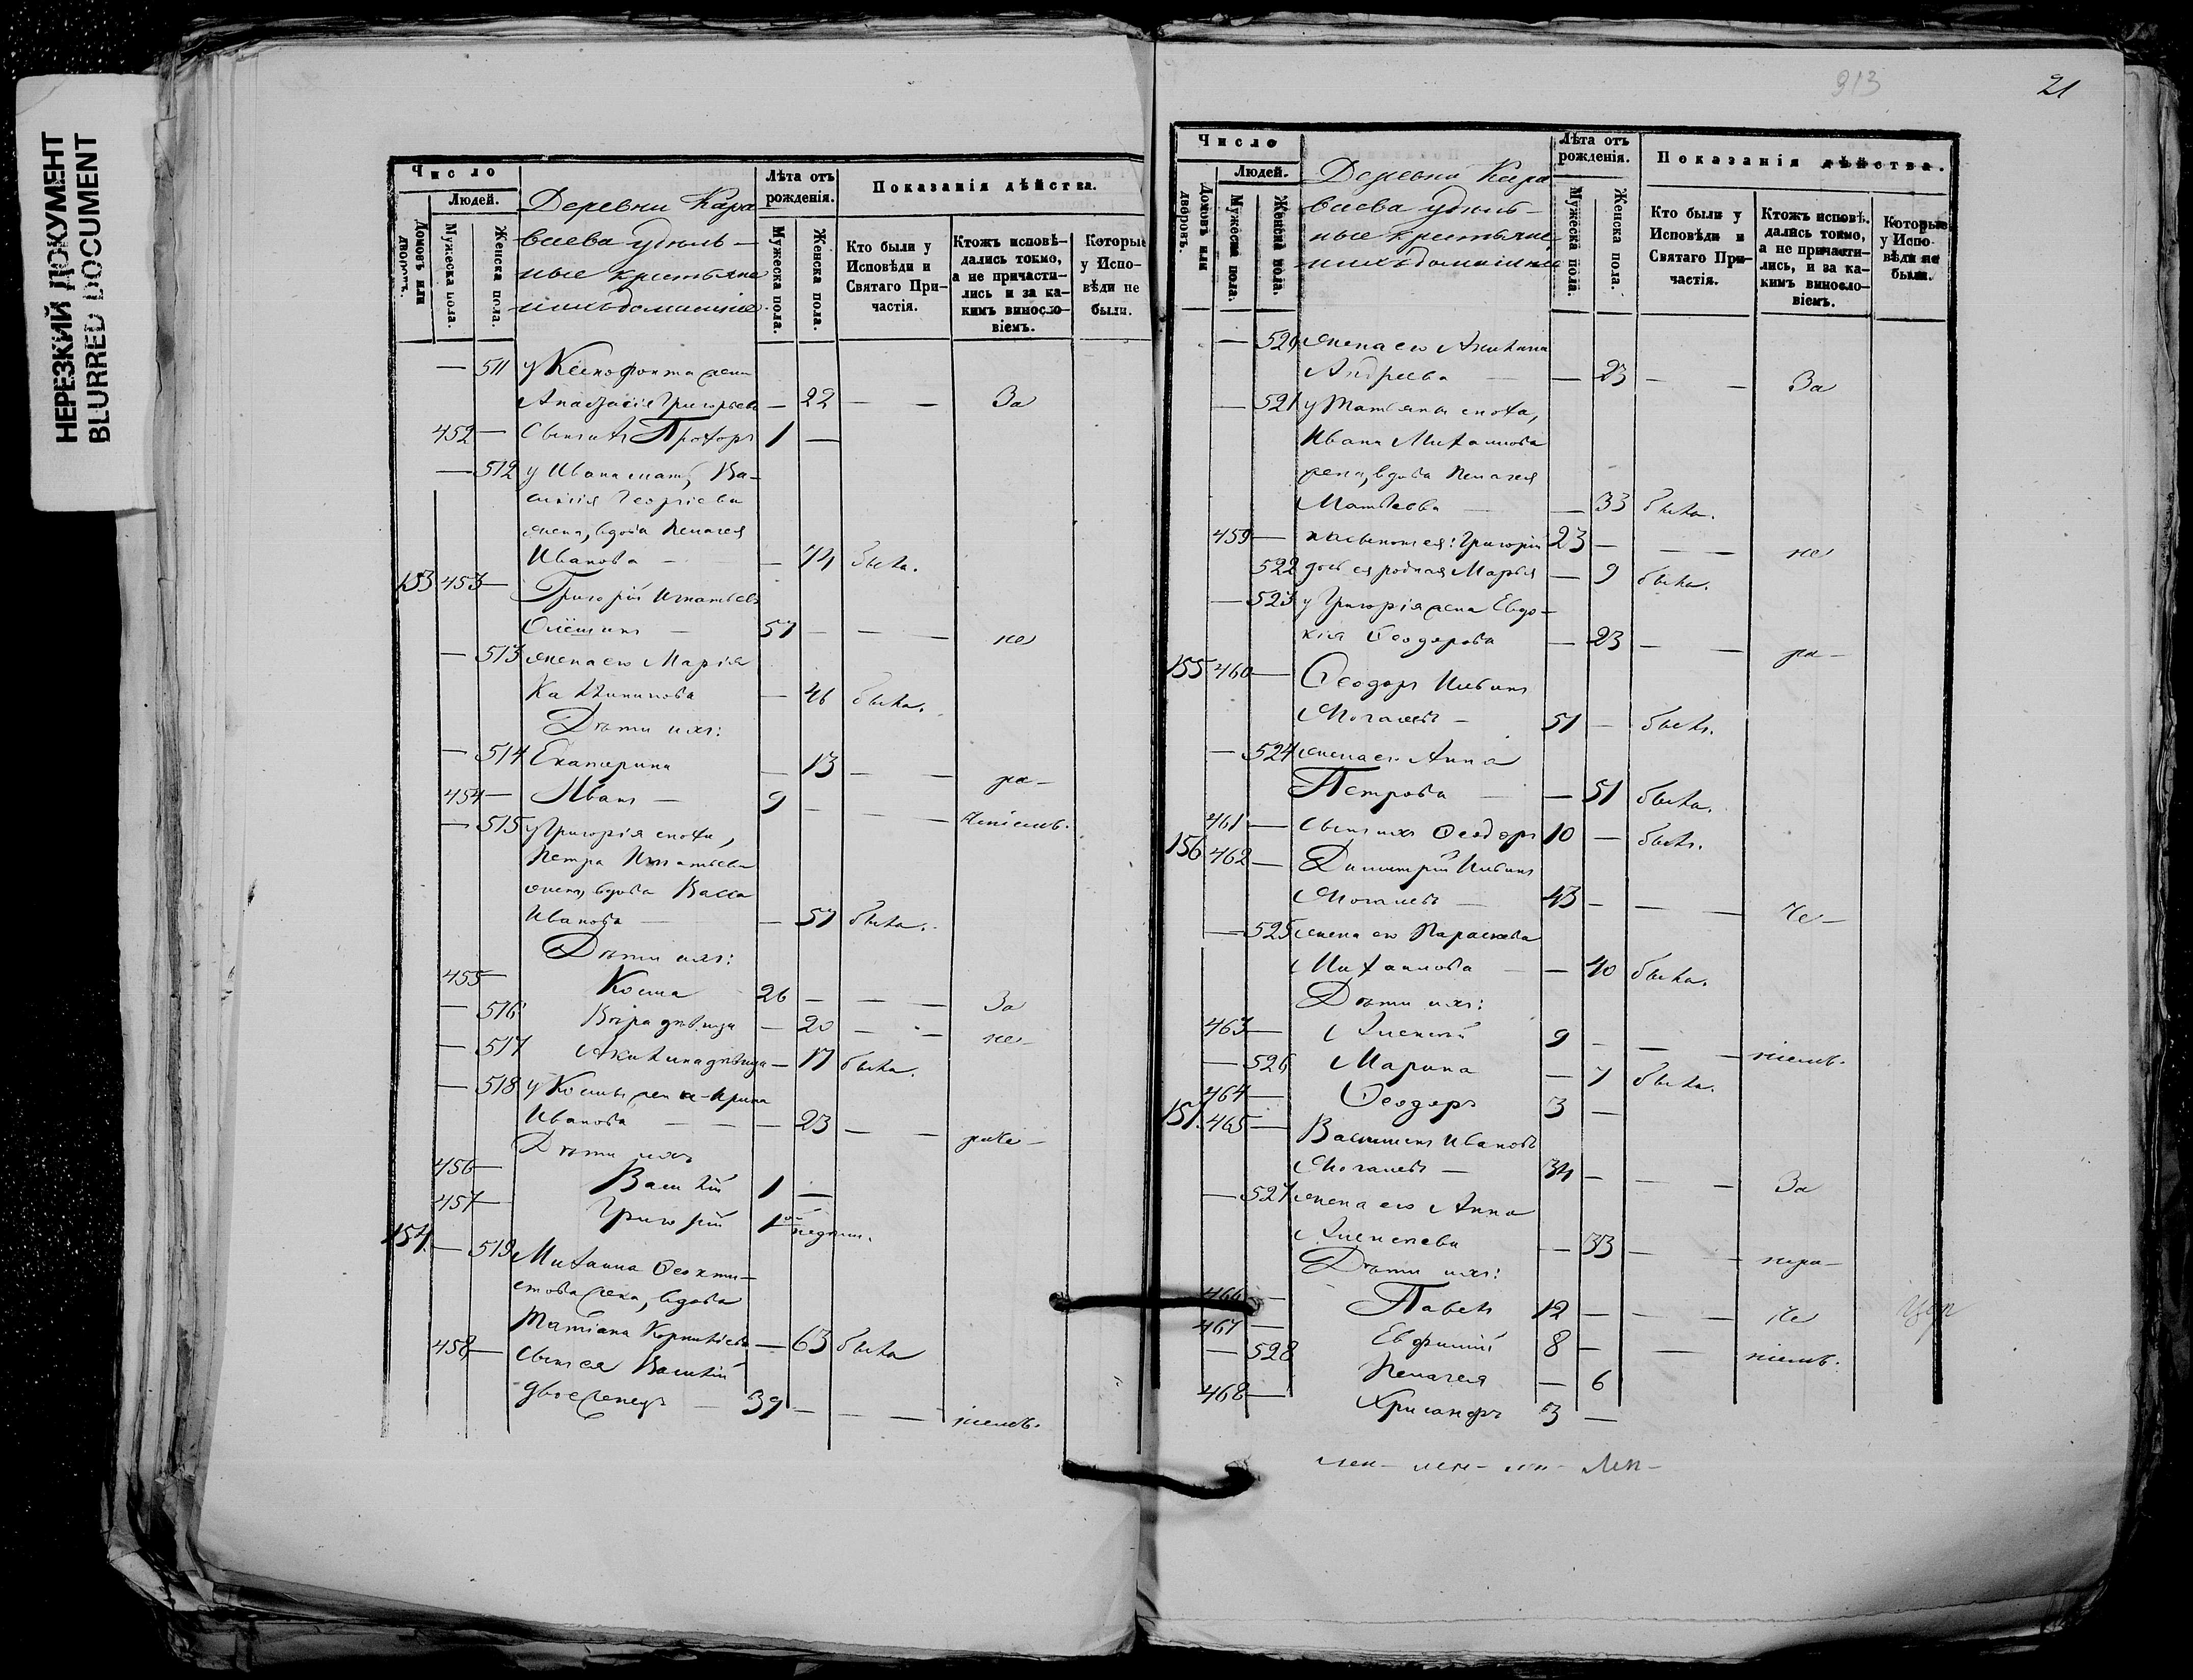 НЕРЕЗКИЙ ДОКУМЕНТ
BLURRED DOCUMENT
Число
Людей.
Домовъ или дворовъ.
Мужеска пола.
Женска пола.
Деревни Кара
ваева удѣль-
ные крестьяне
ихъ домашніе
Лѣта отъ рожденія.
Мужеска пола.
Женска пола.
Показанія дѣйства.
Кто были у
Исповѣди и
Святаго При-
частія.
Ктожъ исповѣ-
дались токмо,
а не причасти-
лись и за ка-
кимъ винсло-
віемъ.
Которые
у Испо-
вѣди не
были.
— 511 у Ксенофонта жена
Анастасія Григорьева — 22 — — За
452 — Сынъ ихъ Прохоръ 1 —
— 512 у Ивана мать, Ва-
силія Георгіева
жена, вдова Пелагея
Иванова — — 74 была.
153 453 — Григорій Игнатьевъ
57 — — — не
— 513 жена его Марія
Каллиникова — 46 была.
Дѣти ихъ:
— 514 Екатерина — 13 — — ра-
454 — Иванъ — 9 — — —
— 515 у Григорія сноха,
Петра Игнатьева
жена, вдова Васса
Иванова — — 57 была.
Дѣти ихъ:
455 — Косма 26 — — — За
— 516 Вѣра дѣвица — 20 — — не-
— 517 Акилина дѣвица — 17 была.
— 518 у Космы жена Ирина
Иванова — — — 23 — —
Дѣти ихъ
456 — Василій 1 —
457 — Григорій 1 недѣли.
154. — 519 Михаила Ѳеокти-
стова жена, вдова
Татіана Корнилієва — 63 была
458 — сынъ ея Василій
двоеженецъ — 39 — — —
313
21
Число
Людей.
Домовъ или дворовъ.
Мужеска пола.
Женска пола.
Деревни Кара
ваева удѣль-
ные крестьяне
ихъ домашніе
Лѣта отъ
рожденія.
Мужеска пола.
Женска пола.
Показанія дѣйства.
Кто были у
Исповѣди и
Святаго При-
частія.
Ктожъ исповѣ.
дались токмо,
а не причасти-
лись, и за ка-
кимъ винсло-
віемъ.
Которые
у Испо-
вѣди не
были.
— 520 жена его Акилина
Андреева — — 23 — — За
— 521 у Татьяны сноха,
Ивана Михаилова
жена, вдова Пелагея
Матвеева — — 33 была.
459 — Григорій 23 — — — не
522 дочь ея родная Марья — 9 была.
— 523 у Григорія жена Евдо-
кія Ѳеодорова — 23 — — ра-
155 460 — Ѳеодоръ Ивинъ
51 — былъ.
— 524 жена его Анна
Петрова — — 51 была.
461 — сынъ ихъ Ѳеодоръ 10 — былъ.
156 462 — Димитрій Ивинъ
— 43 — — — Че-
— 525 жена его Параскева
Михаилова — — 40 была.
Дѣти ихъ:
463 — Алексій 9 — — —
— 526 Марина — 7 была.
464 — Ѳеодоръ 3 —
157. 465 — Ивановъ
— 34 — — — За
— 527 жена его Анна
Алексеева — 33 — —
Дѣти ихъ:
466 — Павелъ 12 — — —
467 — Евфимій 8 — —
— 528 Пелагея — 6
468 — Хрисанфъ 3 —